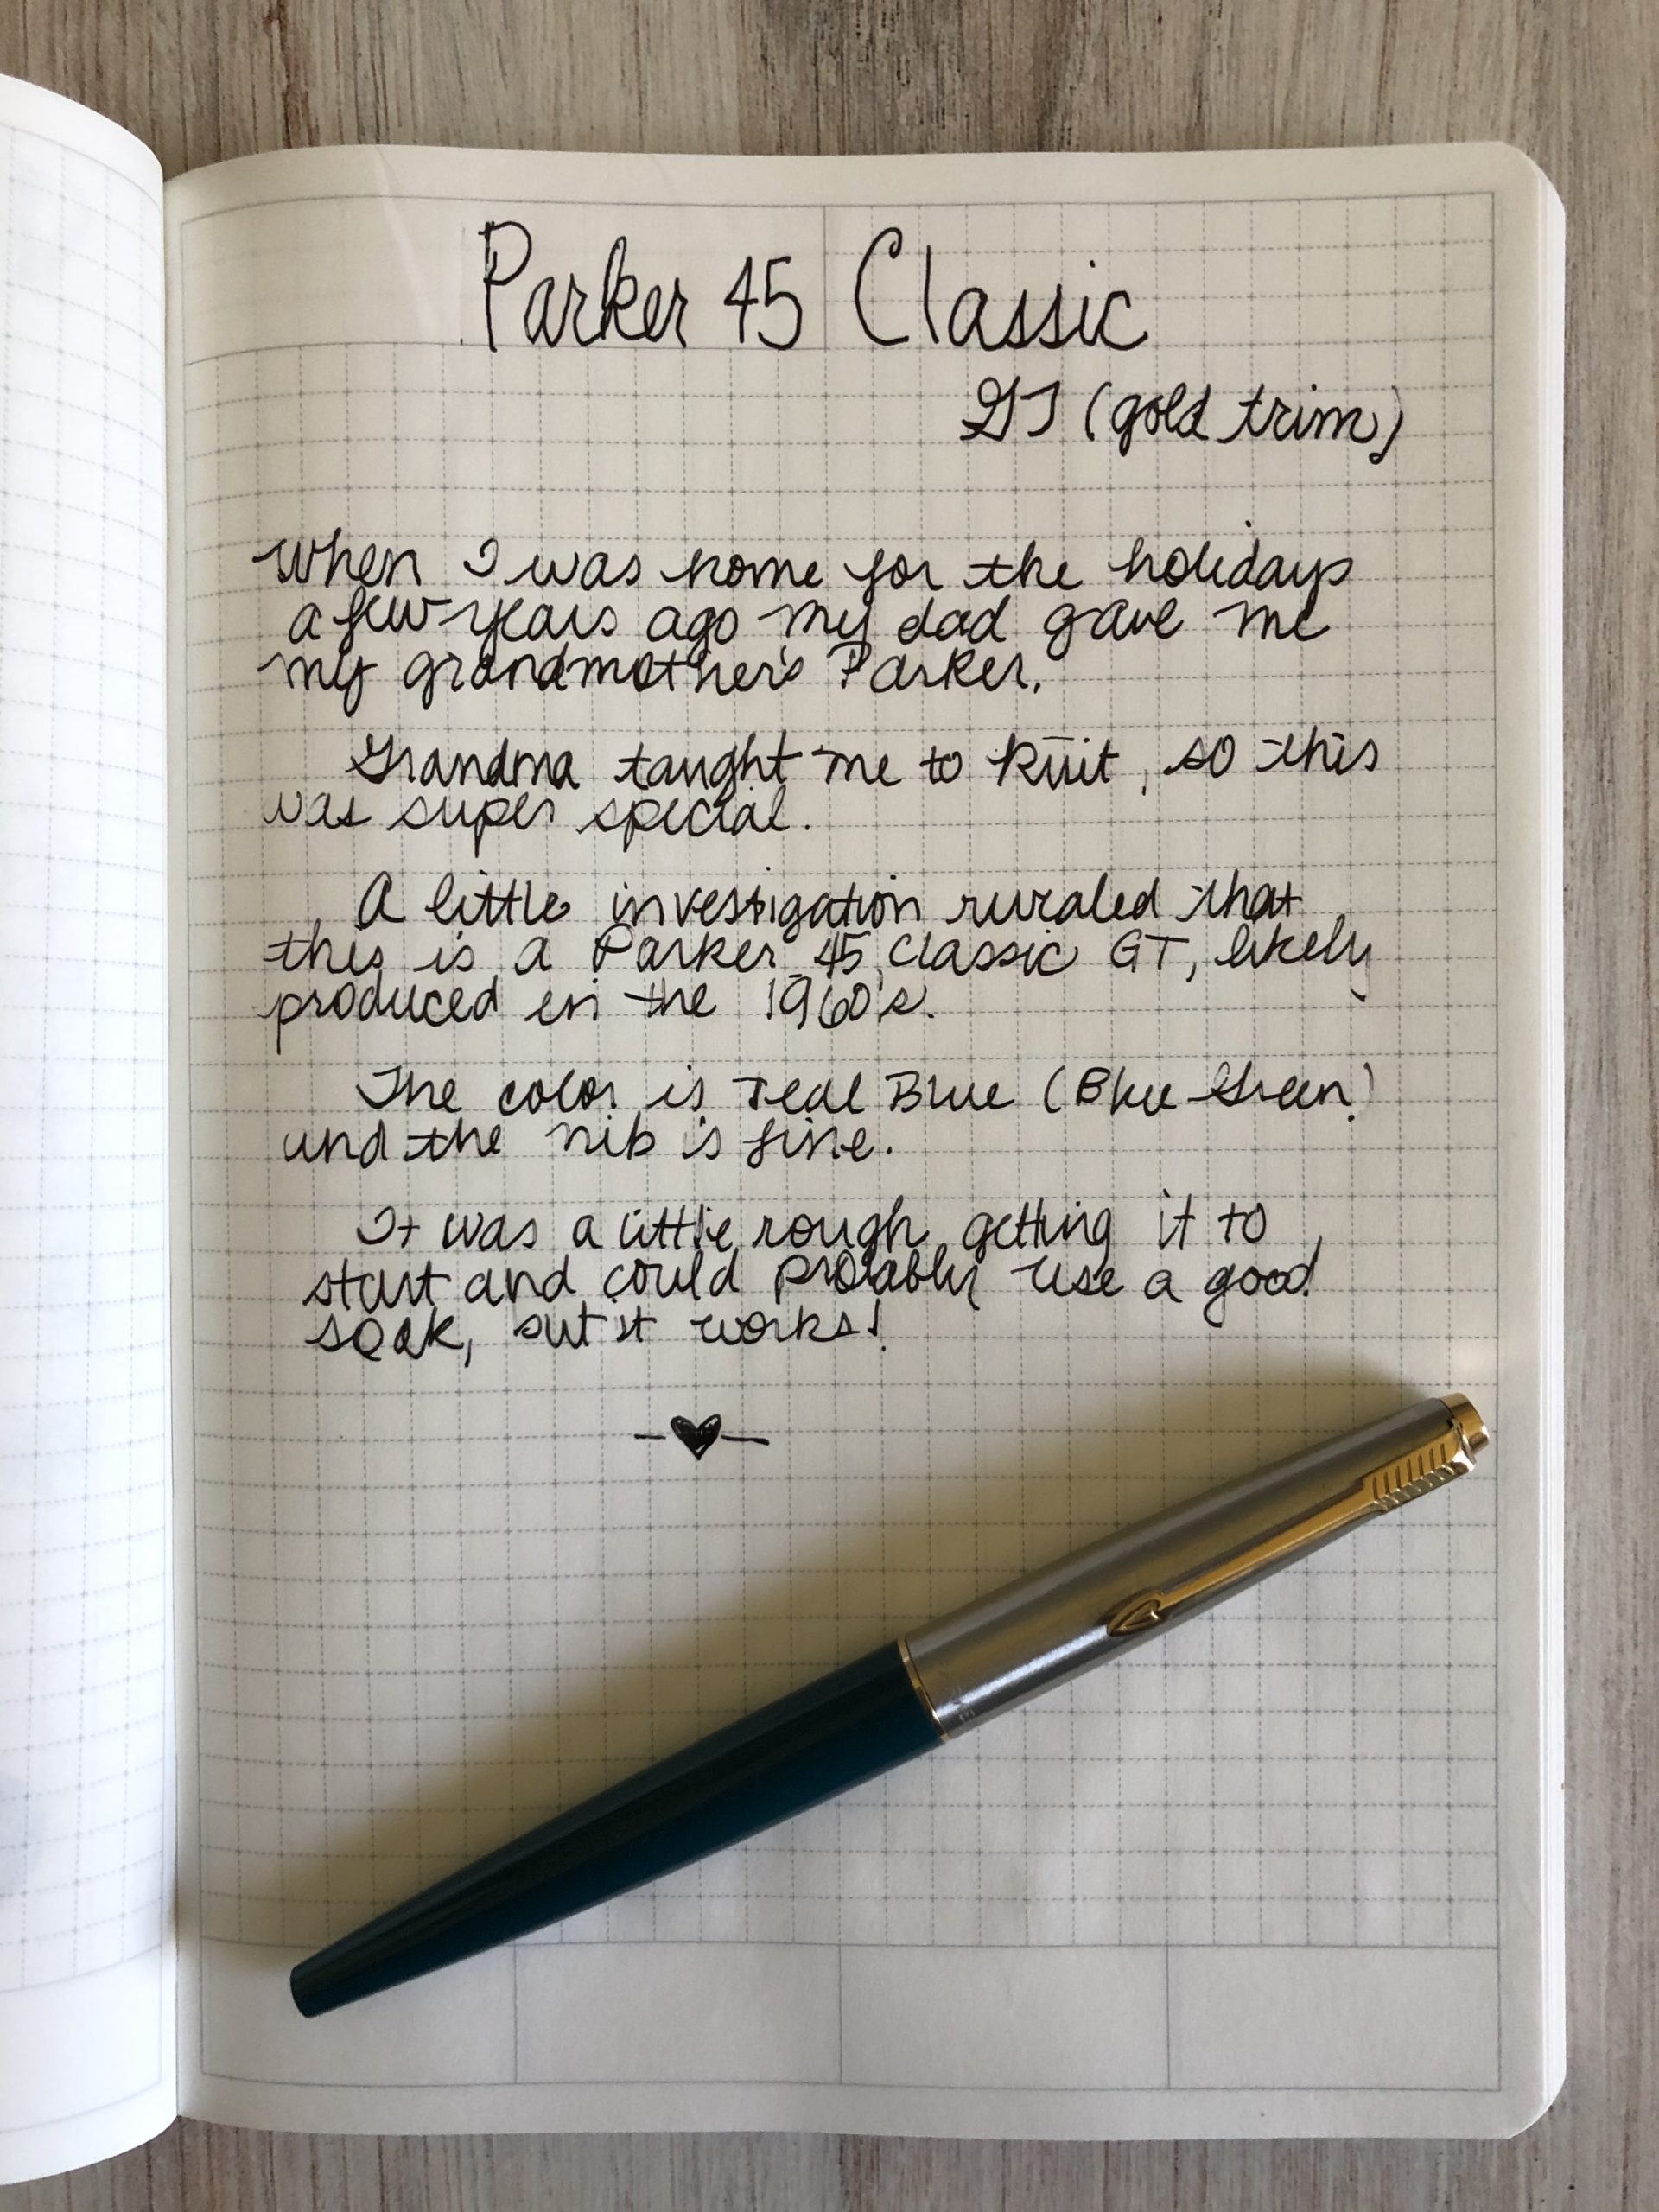 Parker 45 Classic
GT (gold trim)
When I was home for the holidays
a few years ago my dad gave me
my grandmother's Parker.
Grandma taught me to knit, so this
was super special.
A little investigation revealed that
this is a Parker 45 Classic GT, likely
produced in the 1960's.
The color is Teal Blue (Blue-Green)
and the nib is fine.
It was a little rough getting it to
start and could probably use a good
soak, but it works!